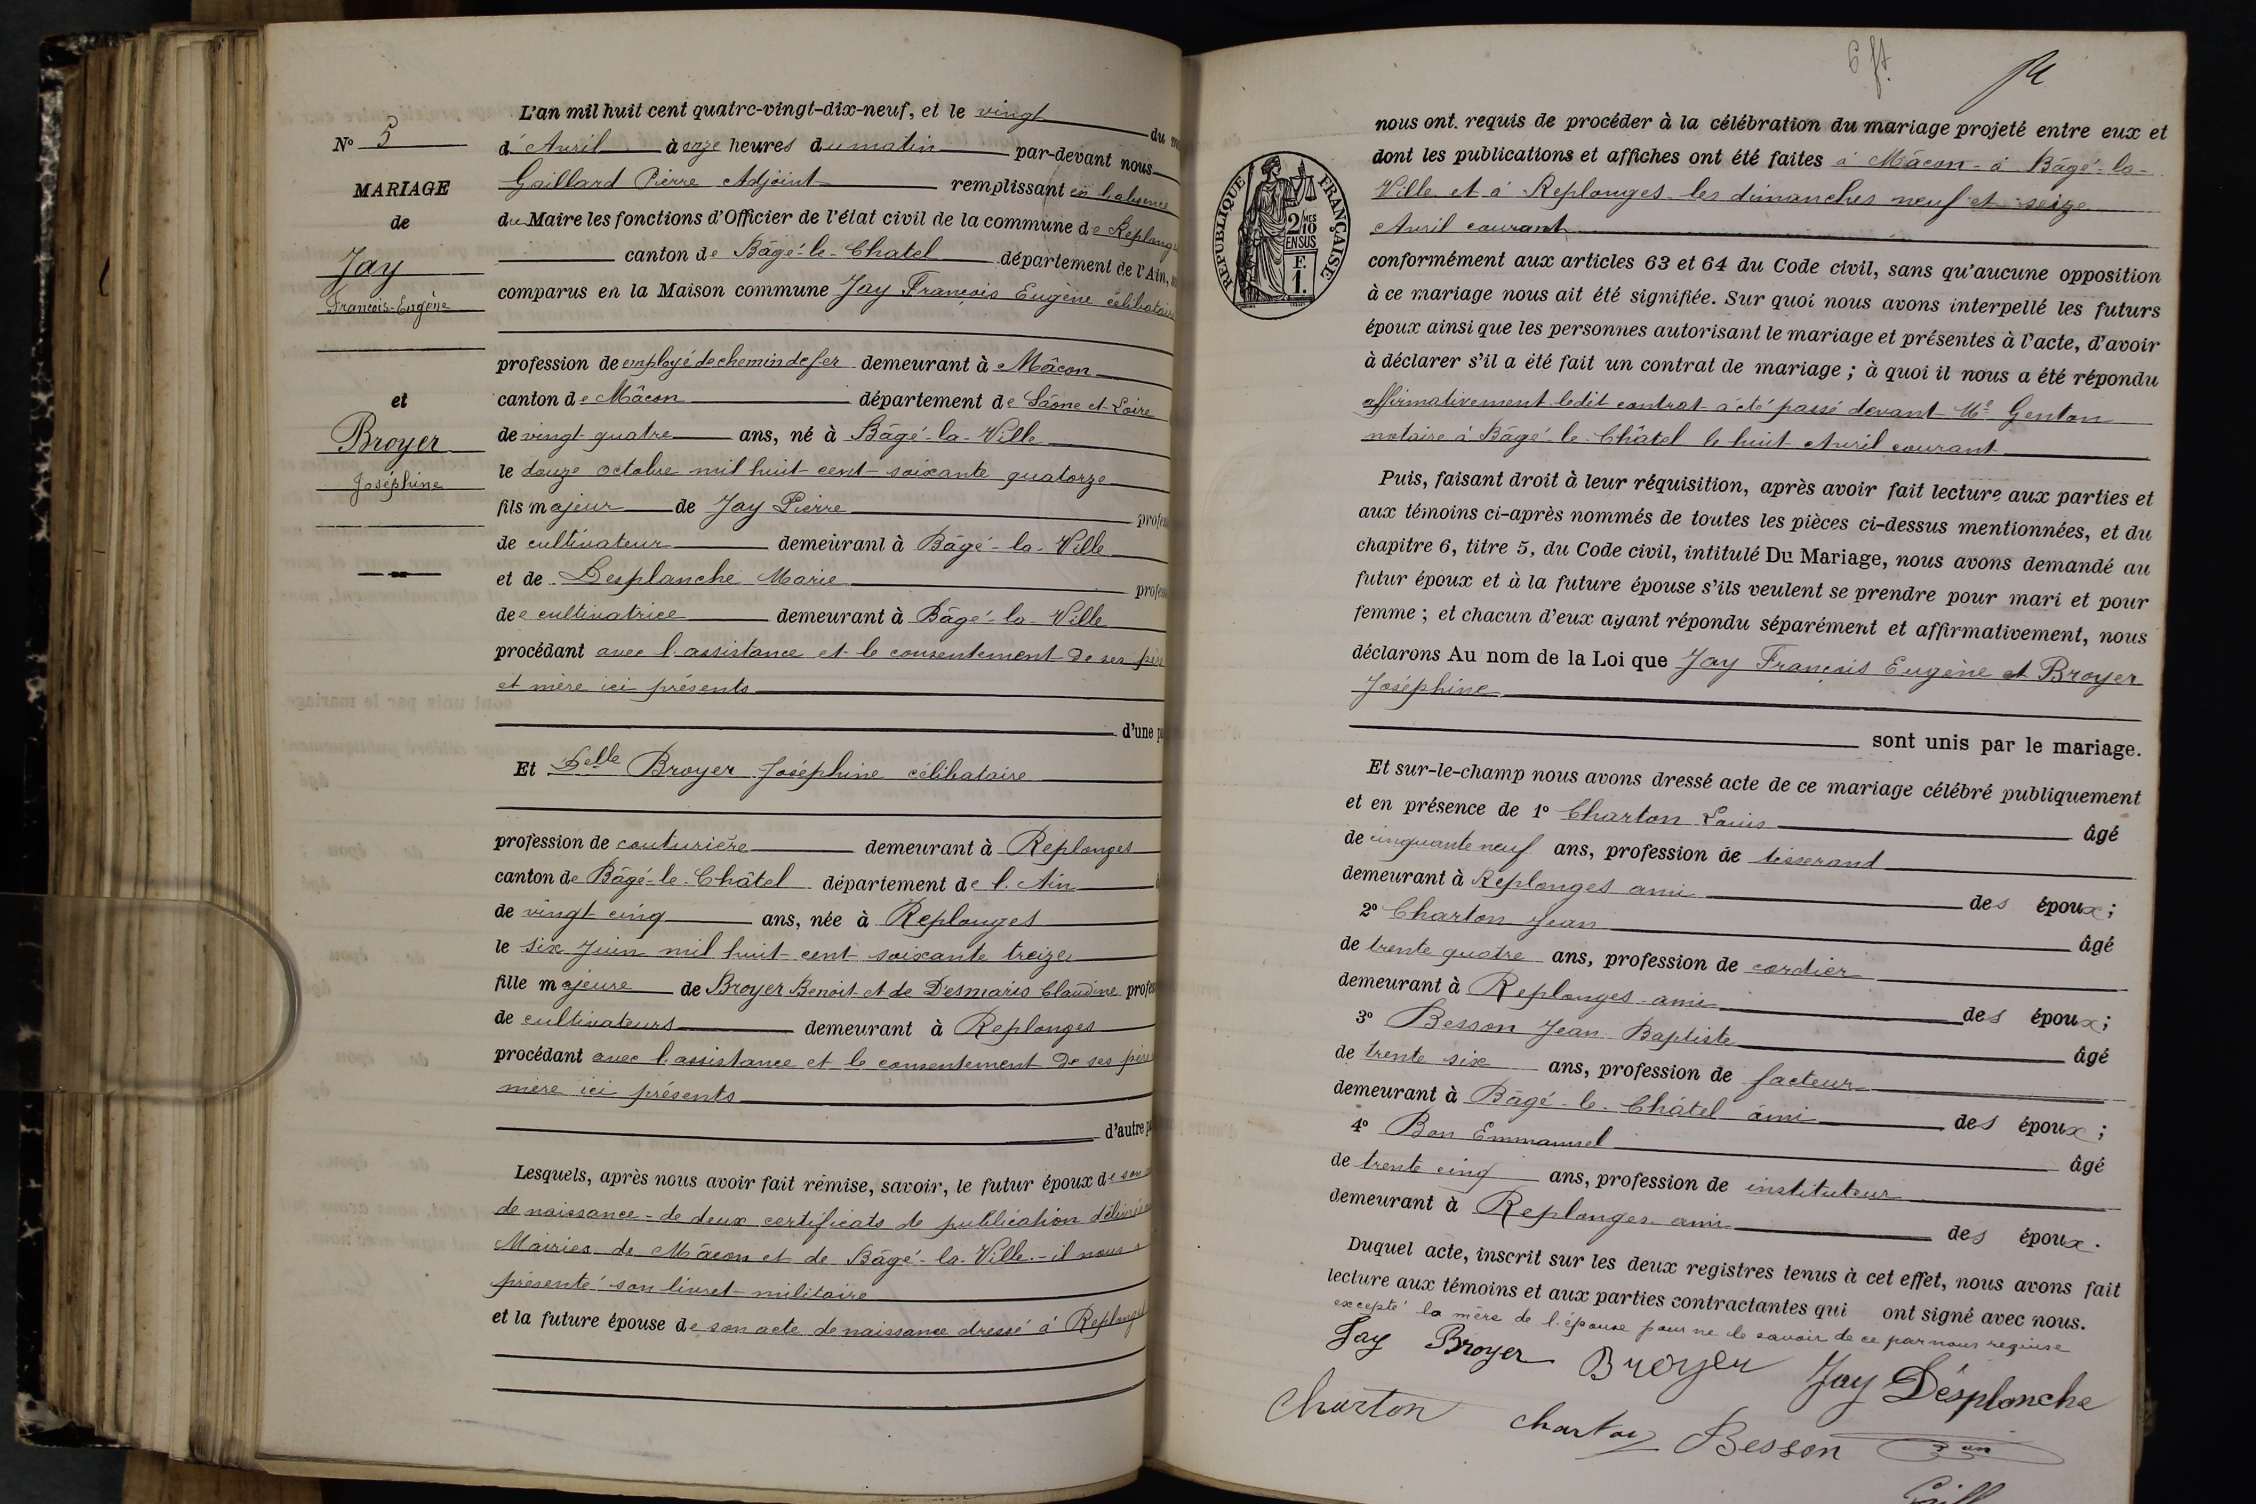 L'an mil huit cent quatre-vingt-dix-neuf, et le vingt du
N° 5
d'Avril à onze heures du matin par-devant nous
Gaillard Pierre Adjoint remplissant en l'absence
MARIAGE
de
du Maire les fonctions d'Officier de l'état civil de la commune de
Jay
canton de Bâgé-le-Chatel département de l'Ain,
François-Eugène
comparus en la Maison commune Jay François Eugène célibataire
profession de employé de chemin de fer demeurant à Mâcon
et
canton de Mâcon département de Sâone et Loire
Broyer
de vingt quatre ans, né à Bâgé-la-Ville
Joséphine
le douze octobre mil huit cent soixante quatorze
fils majeur de Jay Pierre
de cultivateur demeurant à Bâgé-la-Ville
et de Desplanche Marie
de cultivatrice demeurant à Bâgé-la-Ville
procédant avec l'assistance et le consentement de ses père
et mère ici présents
d'une
Et Delle Broyer Joséphine célibataire
profession de couturière demeurant à Replonges
canton de Bâgé-le-Châtel département de l'Ain
de vingt cinq ans, née à Replonges
le six Juin mil huit cent soixante treize
fille majeure de Broyer Benoit et de Desmaris Claudine
de cultivateurs demeurant à Replonges
procédant avec l'assistance et le consentement de ses père
mère ici présents
d'autre
Lesquels, après nous avoir fait remise, savoir, le futur époux de son
de naissance - de deux certificats de publication
Mairies de Mâcon et de Bâgé-la-Ville - il nous
présenté son livret militaire
et la future épouse de son acte de naissance dressé à
6 ft
nous ont requis de procéder à la célébration du mariage projeté entre eux et
dont les publications et affiches ont été faites à Mâcon - à Bâgé-la-
Ville et à Replonges les dimanches neuf et seize
Avril courant
REPUBLIQUE FRANÇAISE
2/10 MES
EN SUS
F.
1.
conformément aux articles 63 et 64 du Code civil, sans qu'aucune opposition
à ce mariage nous ait été signifiée. Sur quoi nous avons interpellé les futurs
époux ainsi que les personnes autorisant le mariage et présentes à l'acte, d'avoir
à déclarer s'il a été fait un contrat de mariage ; à quoi il nous a été répondu
affirmativement ledit contrat a été passé devant Me Genton
notaire à Bâgé-le-Châtel le huit Avril courant
Puis, faisant droit à leur réquisition, après avoir fait lecture aux parties et
aux témoins ci-après nommés de toutes les pièces ci-dessus mentionnées, et du
chapitre 6, titre 5, du Code civil, intitulé Du Mariage, nous avons demandé au
futur époux et à la future épouse s'ils veulent se prendre pour mari et pour
femme ; et chacun d'eux ayant répondu séparément et affirmativement, nous
déclarons Au nom de la Loi que Jay François Eugène et Broyer
Joséphine
sont unis par le mariage.
Et sur-le-champ nous avons dressé acte de ce mariage célébré publiquement
et en présence de 1° Charton Louis âgé
de cinquante neuf ans, profession de tisserand
demeurant à Replonges ami des époux ;
2° Charton Jean âgé
de trente quatre ans, profession de cordier
demeurant à Replonges ami des époux ;
3° Besson Jean Baptiste âgé
de trente six ans, profession de facteur
demeurant à Bâgé-le-Châtel ami des époux ;
4° Bon Emmanuel âgé
de trente cinq ans, profession de instituteur
demeurant à Replonges ami des époux.
Duquel acte, inscrit sur les deux registres tenus à cet effet, nous avons fait
lecture aux témoins et aux parties contractantes qui ont signé avec nous.
excepté la mère de l'épouse pour ne le savoir de ce par nous requise
Jay Broyer Broyer Jay Désplanche
Charton Charton Besson